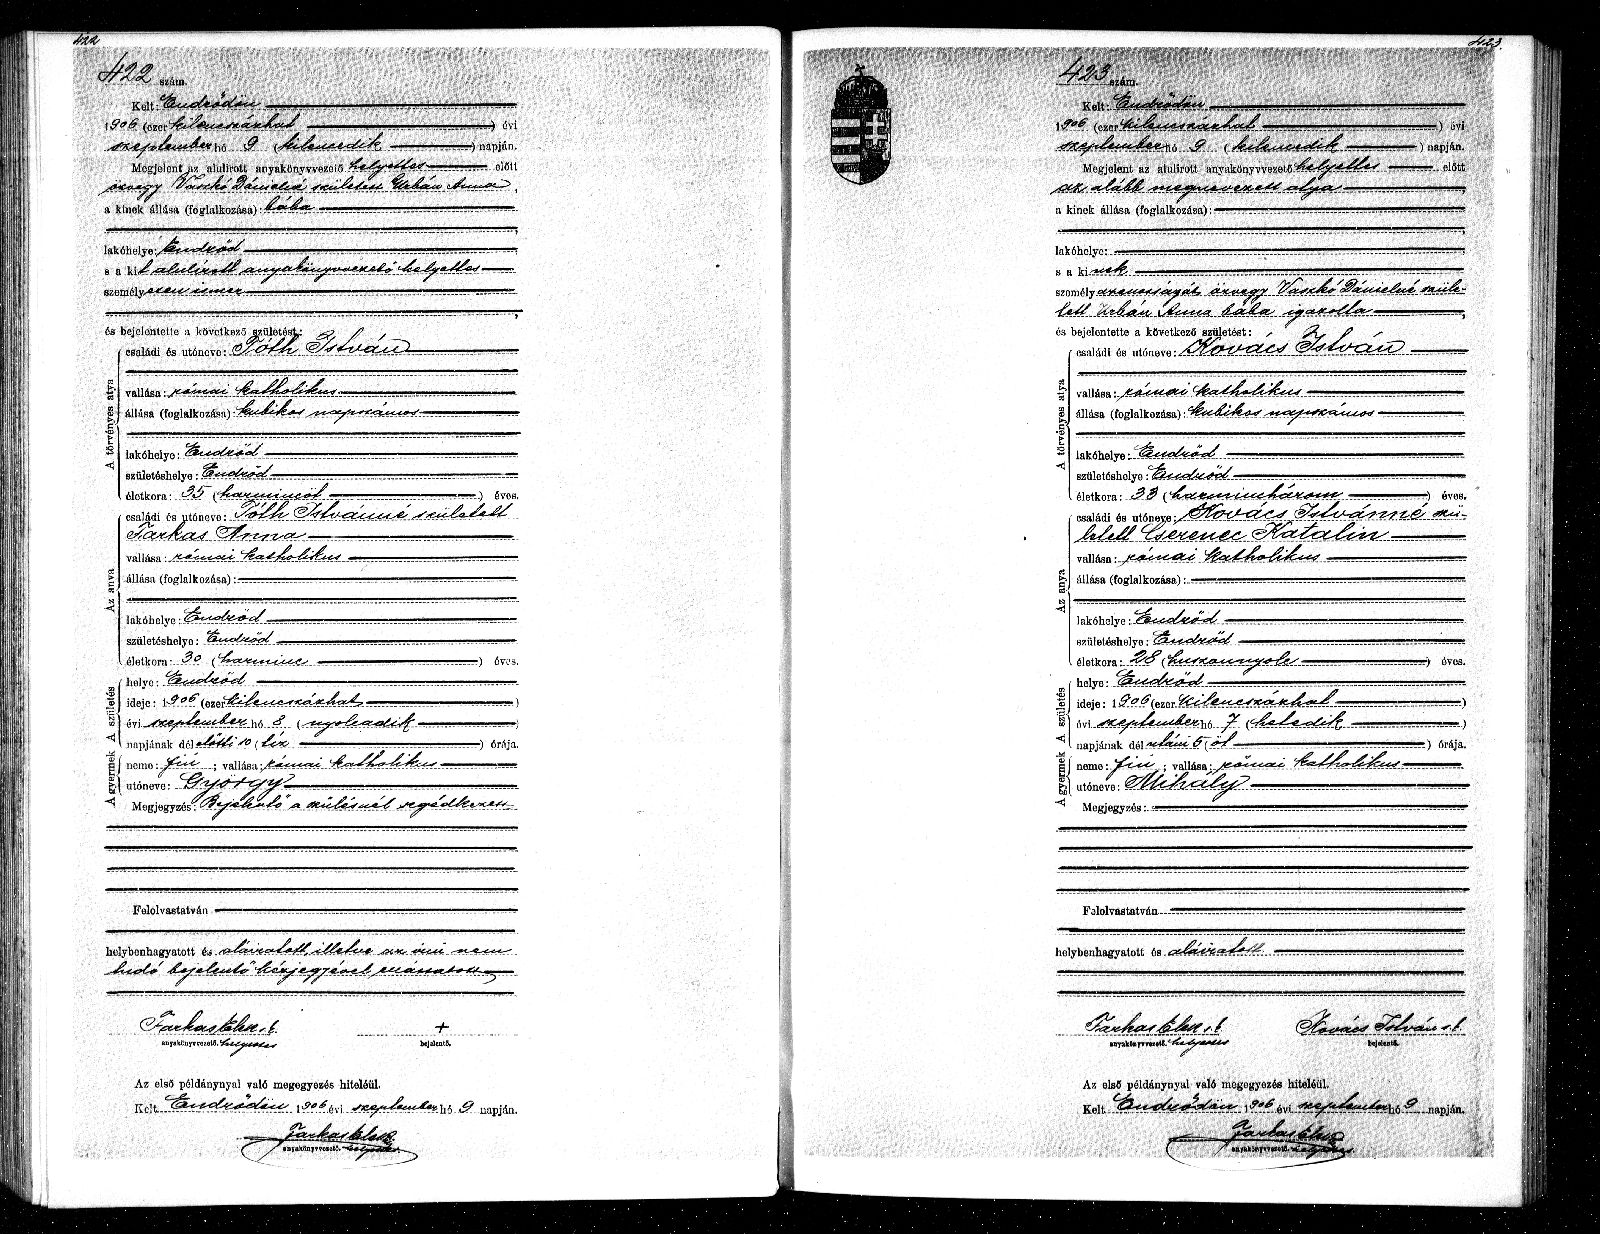 422
422 szám.
Kelt: Endrődön
1906 (ezer kilencszázhat) évi
szeptember hó 9 (kilencedik) napján.
Megjelent az alulirott anyakönyvvezető helyettes előtt
özvegy Vaszkó Dánielné született Urbán Anna
a kinek állása (foglalkozása): bába
lakóhelye: Endrőd
s a kit alulirott anyakönyvvezető helyettes
személyesen ismer
és bejelentette a következő születést:
A törvényes atya
családi és utóneve: Tóth István
vallása: római katholikus
állása (foglalkozása): kubikos napszámos
lakóhelye: Endrőd
születéshelye: Endrőd
életkora: 35 (harmincöt) éves.
Az anya
családi és utóneve: Tóth Istvánné született
Farkas Anna
vallása: római katholikus
állása (foglalkozása):
lakóhelye: Endrőd
születéshelye: Endrőd
életkora: 30 (harminc) éves.
A születés
helye: Endrőd
ideje: 1906 (ezer kilencszázhat)
évi szeptember hó 8 (nyolcadik)
napjának dél előtti 10 (tíz) órája.
A gyermek
neme: fiú; vallása: római katholikus
utóneve: György
Megjegyzés: Bejelentő a szülésnél segédkezett
Felolvastatván
helybenhagyatott és aláiratott, illetve az irni nem
tudó bejelentő kézjegyével ellátatott
Farkas Elek s.k. +
anyakönyvvezető. helyettes bejelentő.
Az első példánynyal való megegyezés hiteléül.
Kelt Endrődön 1906 évi szeptember hó 9 napján.
Farkas Elek
anyakönyvvezető. helyettes
423.
423 szám.
Kelt: Endrődön
1906 (ezer kilencszázhat) évi
szeptember hó 9 (kilencedik) napján.
Megjelent az alulirott anyakönyvvezető helyettes előtt
az alább megnevezett atya
a kinek állása (foglalkozása):
lakóhelye:
s a kinek
személyazonosságát özvegy Vaszkó Dánielné szüle-
tett Urbán Anna bába igazolta
és bejelentette a következő születést:
A törvényes atya
családi és utóneve: Kovács István
vallása: római katholikus
állása (foglalkozása): kubikos napszámos
lakóhelye: Endrőd
születéshelye: Endrőd
életkora: 33 (harminchárom) éves.
Az anya
családi és utóneve: Kovács Istvánné szü-
letett Cserenec Katalin
vallása: római katholikus
állása (foglalkozása):
lakóhelye: Endrőd
születéshelye: Endrőd
életkora: 28 (huszonnyolc) éves.
A születés
helye: Endrőd
ideje: 1906 (ezer kilencszázhat)
évi szeptember hó 7 (hetedik)
napjának dél utáni 5 (öt) órája.
A gyermek
neme: fiú; vallása: római katholikus
utóneve: Mihály
Megjegyzés:
Felolvastatván
helybenhagyatott és aláiratott
Farkas Elek s.k. Kovács István s.k.
anyakönyvvezető. helyettes bejelentő.
Az első példánynyal való megegyezés hiteléül.
Kelt Endrődön 1906 évi szeptember hó 9 napján.
Farkas Elek
anyakönyvvezető. helyettes